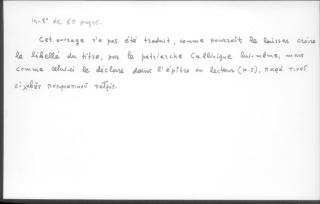 in-8° de 50 pages.
Cet ouvrage n'a pas été traduit, comme pourrait le laisser croire
le libellé du titre, par le patriarche Callinique lui-même, mais
comme celui-ci le déclare dans l'épître au lecteur (p. 5), παρά τινος